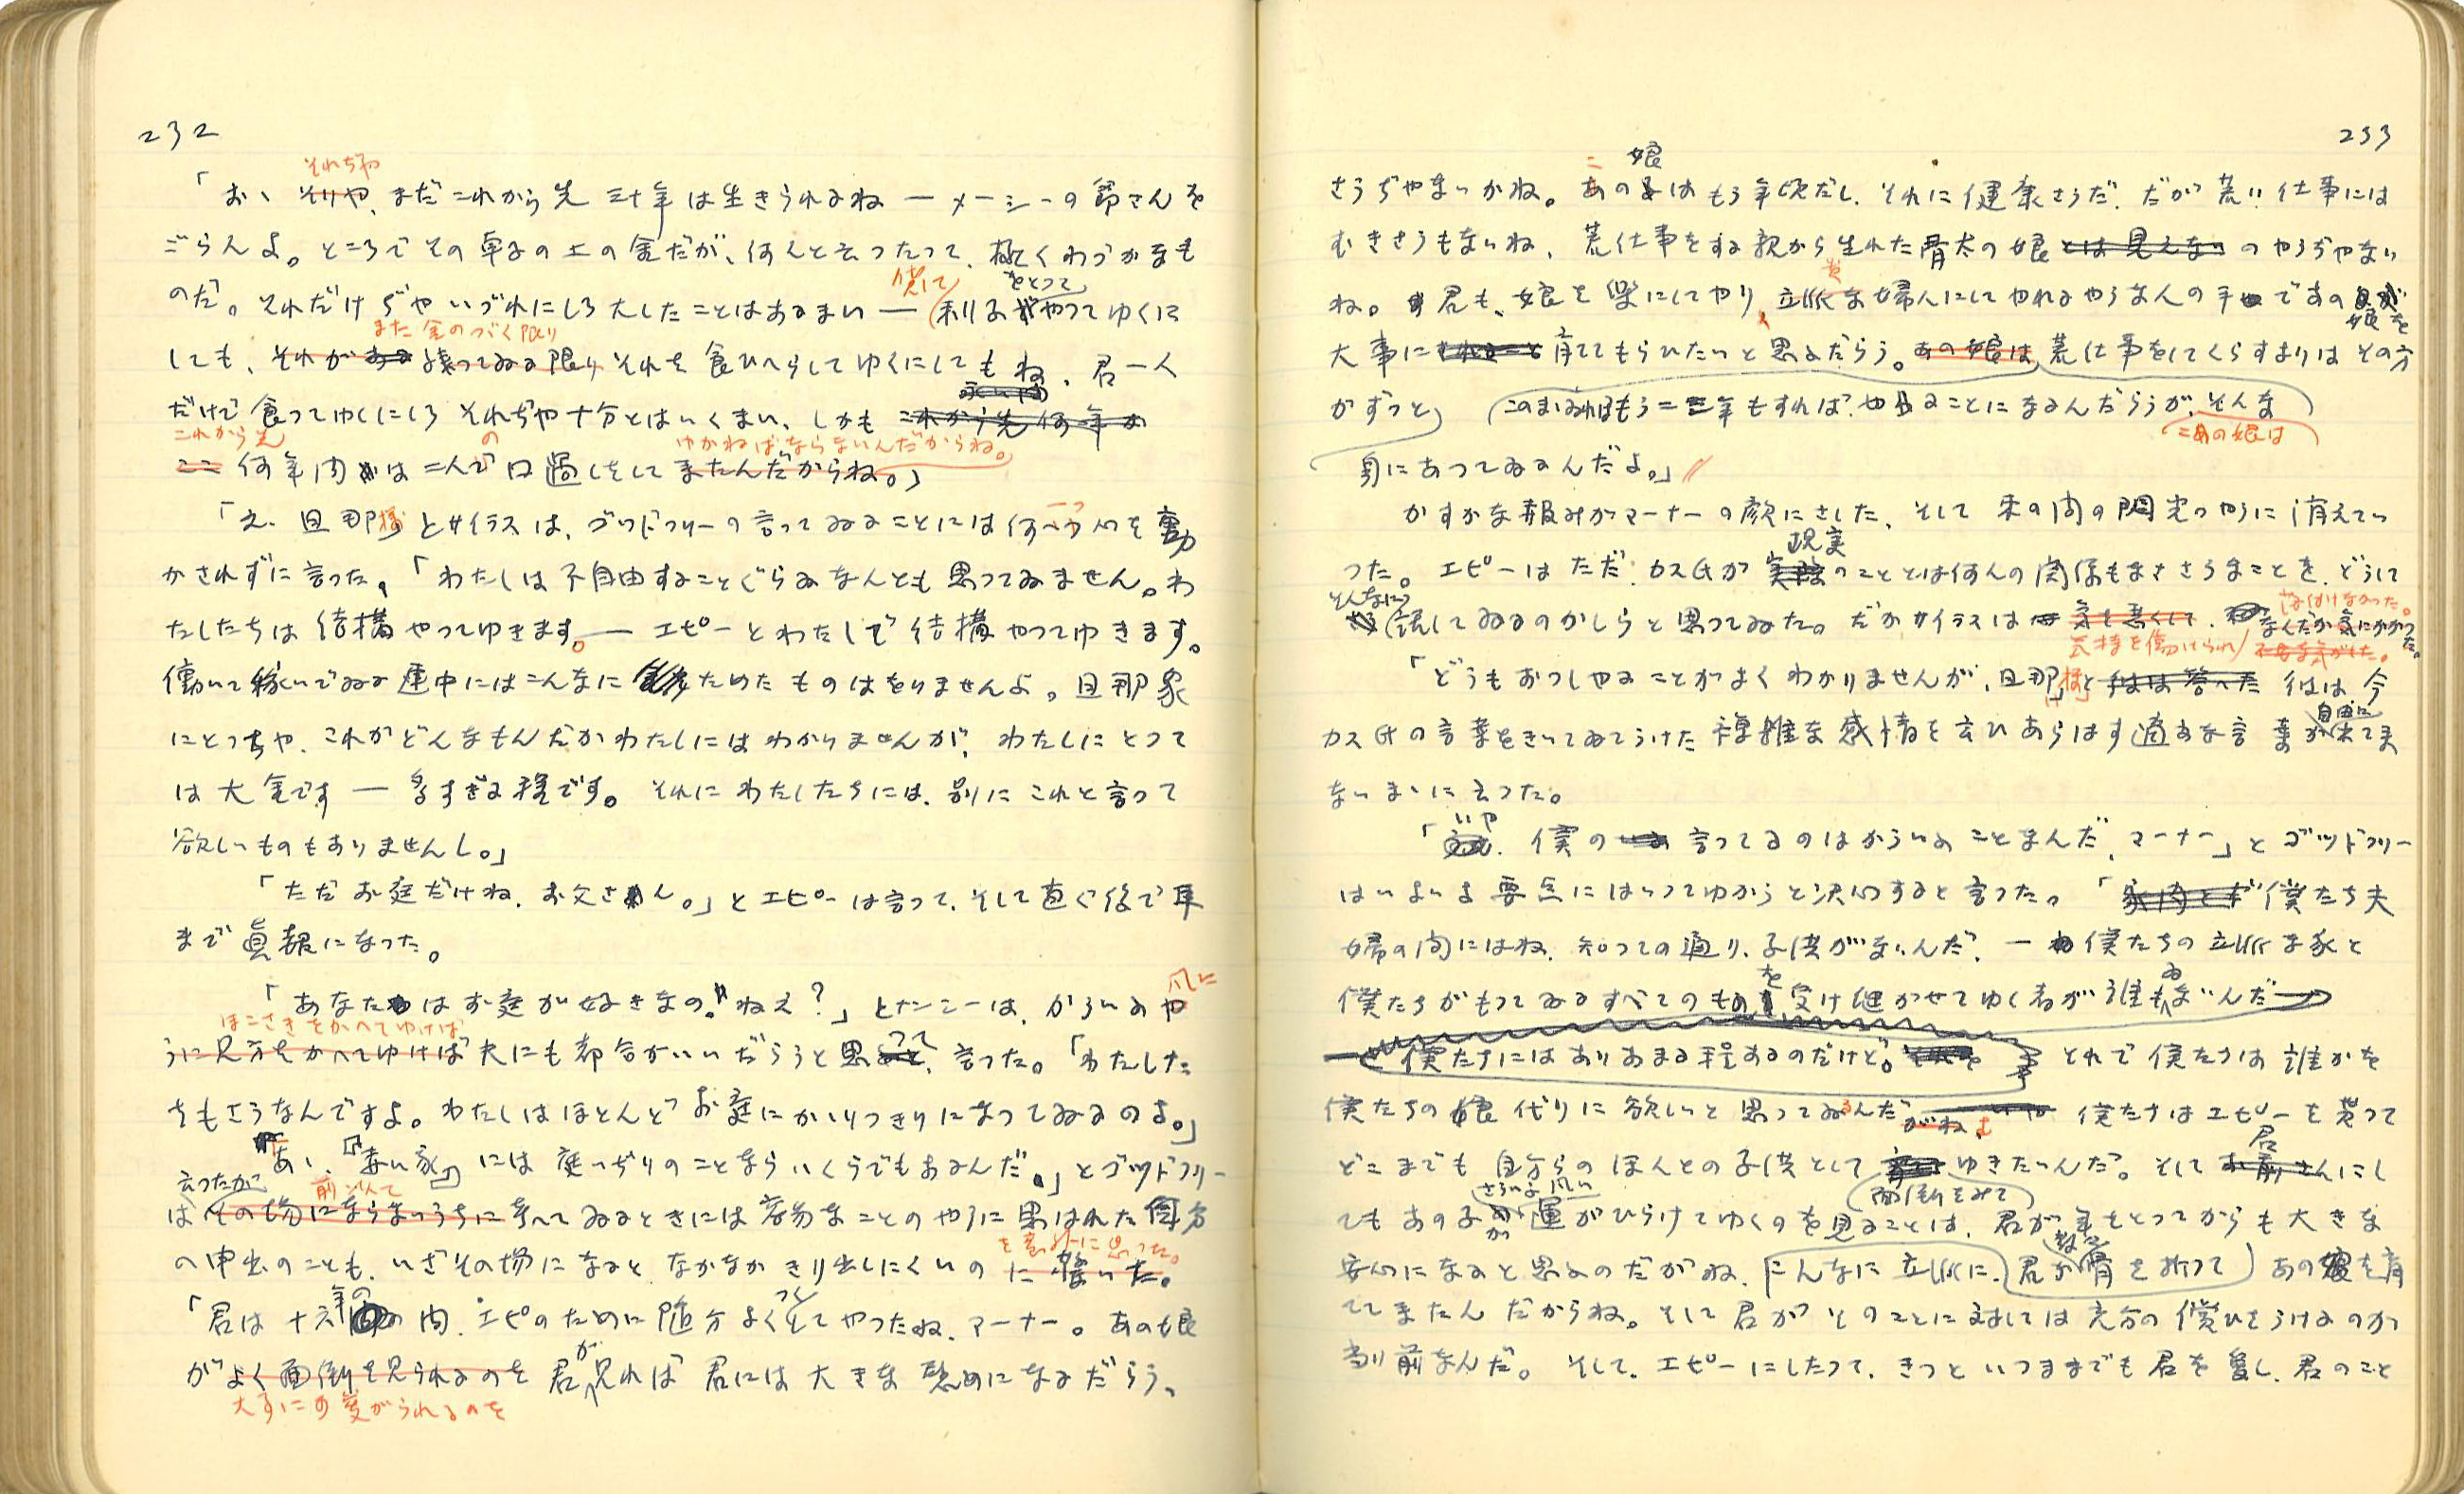 232
それぢや
「おゝ そりや、まだこれから先 三十年は生きられるね ― メーシーの爺さんを
ごらんよ。ところでその卓子の上の金だが、何んと云つたつて、極くわづかなも
のだ。それだけぢや いづれにしろ大したことはあるまい ― 利子でやつてゆくに
をとつて
また金のつゞく限り
しても、それがある残つてゐる限り それを食ひへらしてゆくにしてもね、君一人
だけで食つてゆくにしろ それぢや十分とはいくまい、しかも これから先何年か
これから先
の
ゆかねばならないんだからね。
何年間かは二人で口過しをして またんだからね。」
「え、旦那様」とサイラスは、ゴッドフリーの言つてゐることには何一つ心を動
かされずに言つた、「わたしは不自由することぐらゐなんとも思つてゐません。わ
たしたちは結構やつてゆきます。― エピーとわたしで結構やつてゆきます。
働いて稼いでゐる連中にはこんなにためたものはをりませんよ。旦那家
にとつちや、これがどんなもんだかわたしにはわかりませんが、わたしにとつて
は大金です ― 多すぎる程です。それにわたしたちには、別にこれと言つて
欲しいものもありませんし。」
「ただお庭だけね、お父さん。」とエピーは言つて、そして直ぐ後で耳
まで真赧になつた。
風に
「あなたはお庭が好きなの、ねえ？」とナンシーは、かういふや
ほこさきをかへてゆけば
うに見方をかへてゆけば夫にも都合がいいだらうと思つて、言つた。「わたした
ちもさうなんですよ。わたしはほとんどお庭にかゝりつきりになつてゐるのよ。」
「あゝ、『赤い家』には庭いぢりのことならいくらでもあるんだ。」とゴッドフリー
云つたが
前以て
はその場にならないうちに考へてゐるときには容易なことのやうに思はれた自分
を意外に思つた。
の申出のことも、いざその場になると、なかなかきり出しにくいのに驚いた。
年の
「君は十六年の間、エピのために随分よくしてやつたね、マーナー。あの娘
が
がよく面倒を見られるのを君見れば君には大きな慰めになるだらう、
大事に可愛がられるのを
233
こ 娘
さうぢやないかね。あの子はもう年頃だし、それに健康さうだ、だが荒い仕事には
むきさうもないね、荒仕事をする親から生れた骨太の娘とは見えない のやうぢやない
ね。君も、娘を楽にしてやり、立派な婦人にしてやれるやうな人の手であの
娘を
大事に 育ててもらひたいと思ふだらう。あの娘は荒仕事をしてくらすよりはその方
がずつと (このまゝゐればもう二三年もすれば、やることになるんだらうが、そんな
この娘は
身にあつてゐるんだよ。」
かすかな赧みがマーナーの顔にさした、そして 束の間の閃光のやうに消えてい
現実
つた。エピーはただ、カス氏が のこととは何んの関係もなささうなことを、どうして
そんなに
話してゐるのかしらと思つてゐた。だがサイラスは 気を悪くして、なんだか気にかかつた。
気持を傷けられ
「どうもおつしやることがよくわかりませんが、旦那様」と 彼は答へた 彼は今
自由に
カス氏の言葉をきいてゐてうけた複雑な感情を云ひあらはす適当な言葉が出て来
ないまゝに云つた。
いや
「 、僕の 言つてるのはかういふことなんだ、マーナー」とゴッドフリー
はいよいよ要点にはいつてゆかうと決心すると言つた。「家内とが 僕たち夫
婦の間にはね、知つての通り、子供がないんだ、― 僕たちの立派な家と
を
ゐ
僕たちがもつてゐるすべてのもの 受け継がせてゆく者が誰もないんだ
― 僕たちにはありあまる程あるのだけど。 それで僕たちは誰かを
僕たちの娘代りに欲しいと思つてゐるんだがね、僕たちはエピーを貰つて
君
どこまでも自分らのほんとの子供として ゆきたいんだ。そしてお前さんにし
さういふ風に
面倒をみて
てもあの子が運がひらけてゆくのを見ることは、君が年をとつてからも大きな
安心になると思ふのだがね、こんなに立派に、君が骨を折つて あの娘を育
ててきたんだからね。そして君がそのことに対しては充分の償ひをうけるのが
当り前なんだ。そして、エピーにしたつて、きつといつまでも君を愛し、君のこと